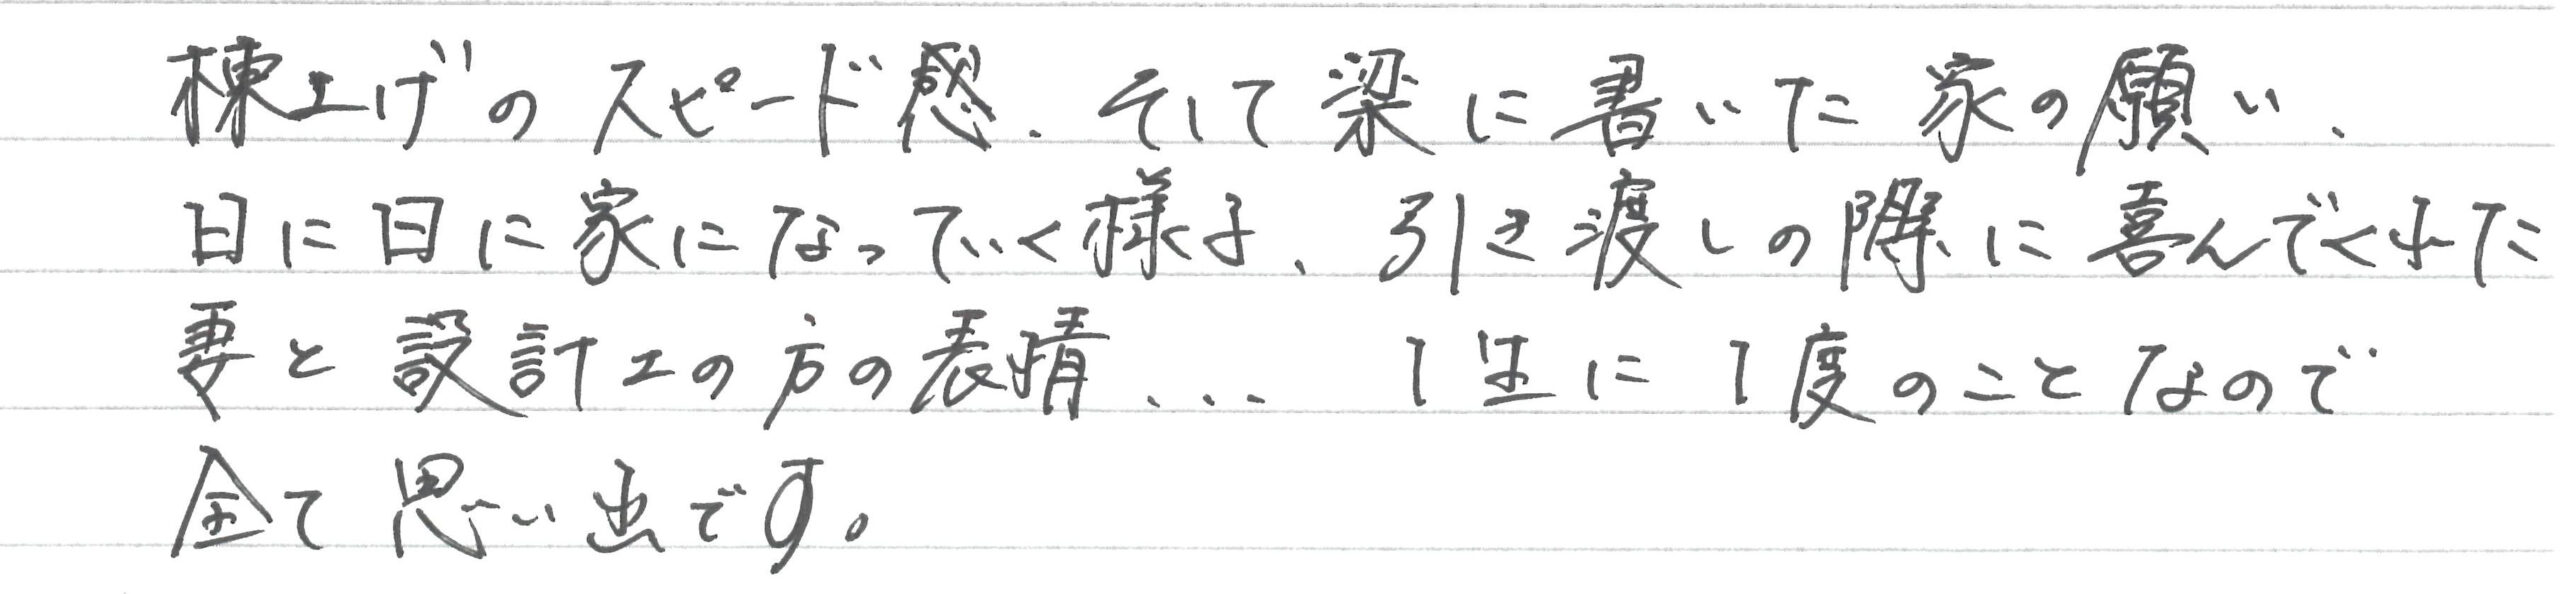 棟上げのスピード感、そして梁に書いた家の願い、
日に日に家になっていく様子、引き渡しの際に喜んでくれた
妻と設計工の方の表情、、、 1生に1度のことなので
全て思い出です。